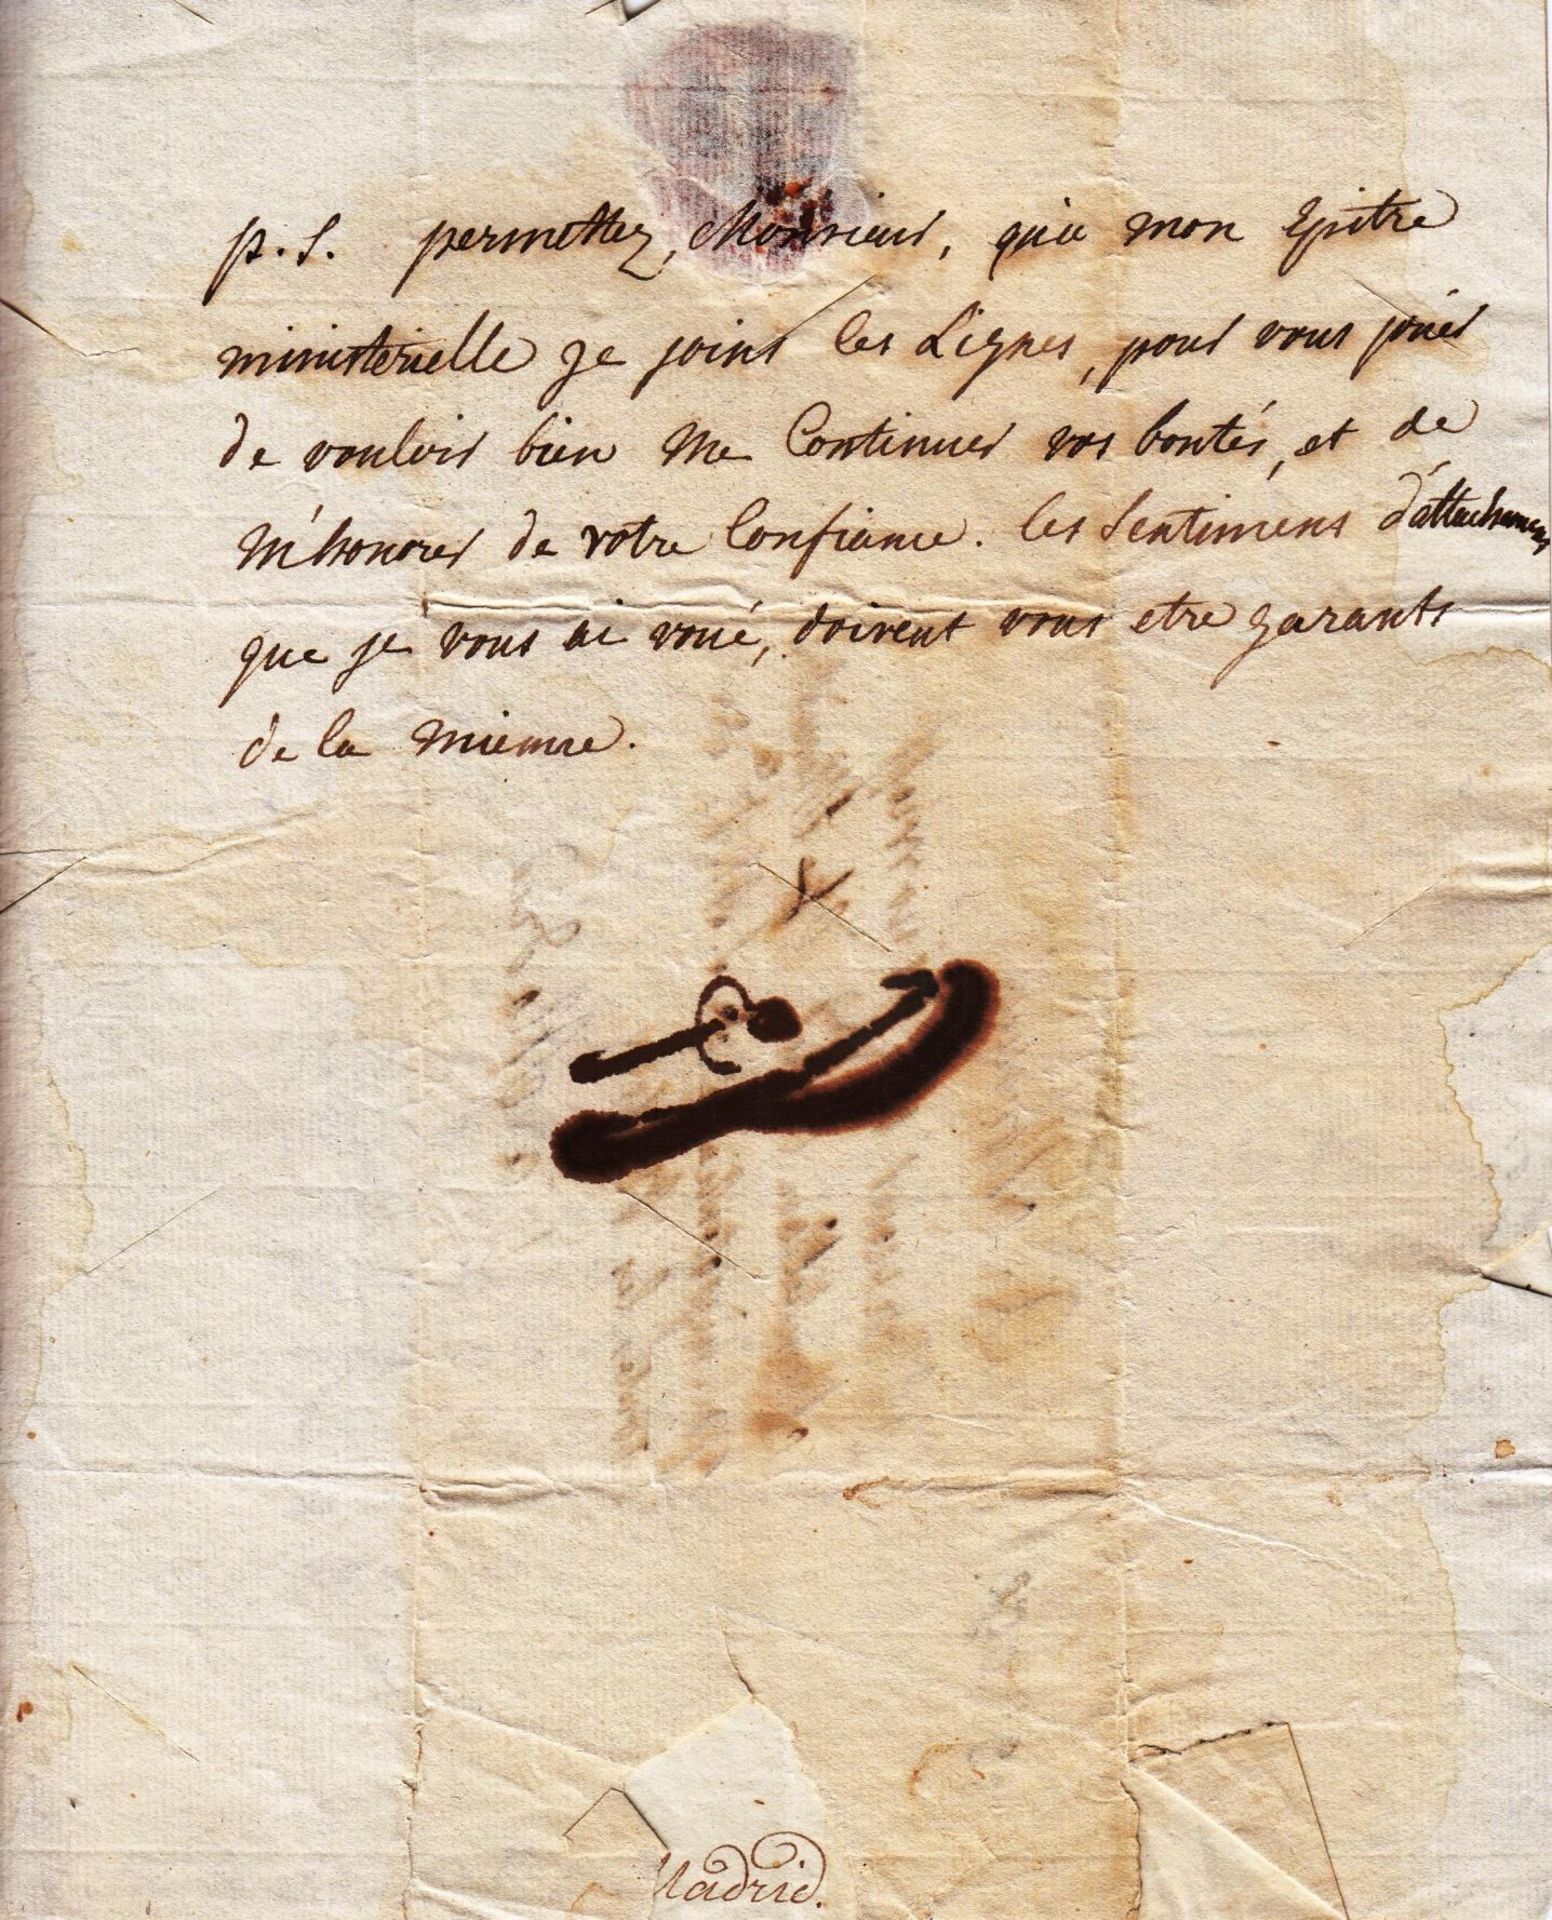 p.S. permettez, Monsieur, qu'a mon Epitre
ministerielle je joins ces Lignes, pour vous prier
de vouloir bien me Continuer vos bontés, et de
M'honorer de votre Confiance. les Sentimens d'attachement
que je vous ai voué, doivent vous etre garants
de la mienne.
Madrid.